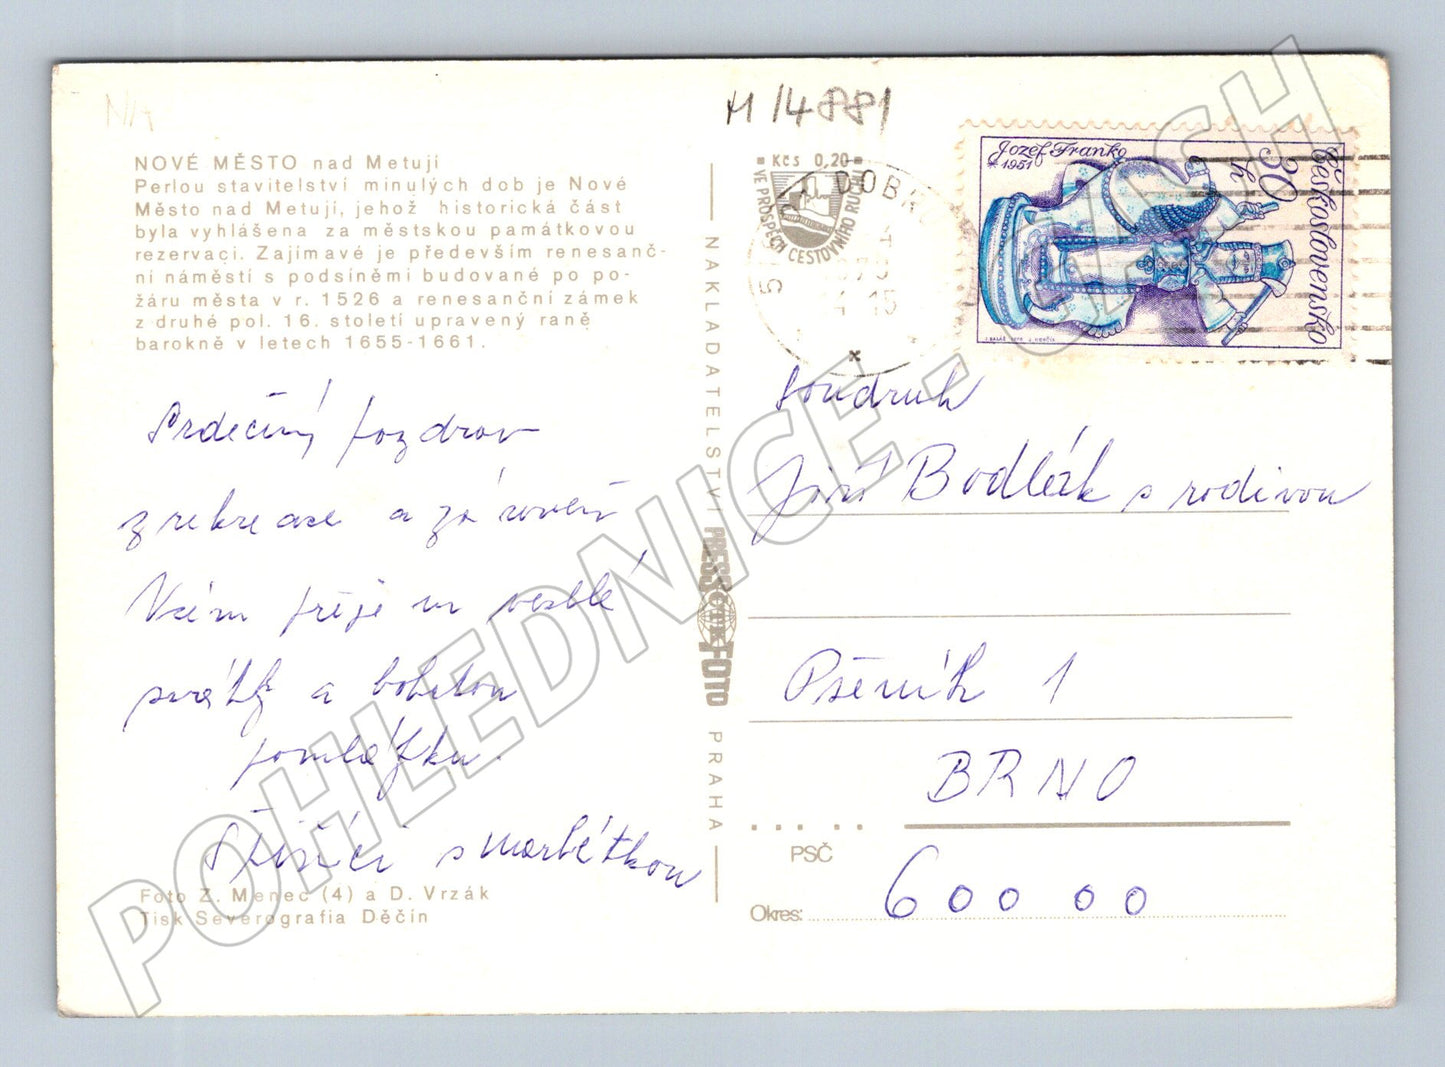 M 14881
N/A
NOVÉ MĚSTO nad Metují
Perlou stavitelství minulých dob je Nové
Město nad Metují, jehož historická část
byla vyhlášena za městskou památkovou
rezervaci. Zajímavé je především renesanč-
ní náměstí s podsíněmi budované po po-
žáru města v r. 1526 a renesanční zámek
z druhé pol. 16. století upravený raně
barokně v letech 1655-1661.
Srdečný pozdrav
z rekreace a zároveň
Vám přeje m veselé
svátky a bohatou
pomlázku.
s Markétkou
Foto Z. Menec (4) a D. Vrzák
Tisk Severografia Děčín
NAKLADATELSTVÍ PRESSFOTO PRAHA
Kčs 0,20
VE PROSPĚCH CESTOVNÍHO RUCHU
DOBR
15
Jozef Franko
*1951
30 h
Československo
soudruh
Jiří Bodlák s rodinou
Pšeník 1
BRNO
PSČ
Okres: 600 00
POHLEDNICE - CASH